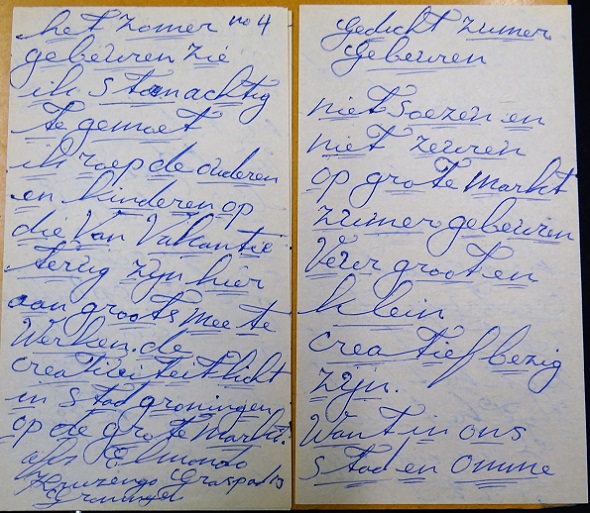 het zomer no 4
gebeuren zie
ik stanachtig
te gemoet
ik roep de ouderen
en kinderen op
die van vakantie
terug zijn hier
aan groots mee te
werken. de
creativiteit licht
in stad groningen
op de grote markt.
afs
Groningen
gedicht zumer
gebeuren
niet soezen en
niet zeuren
op grote markt
zumer gebeuren
veur groot en
klein
creatief bezig
zijn.
want in ons
stad en omme